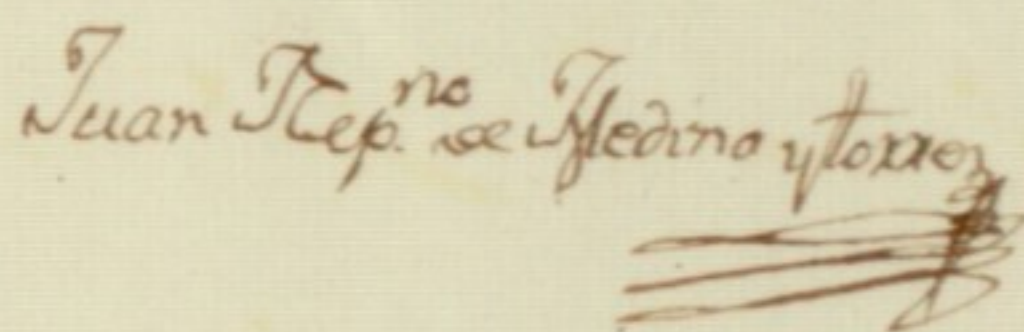 Juan Nep.no de Medina y torres